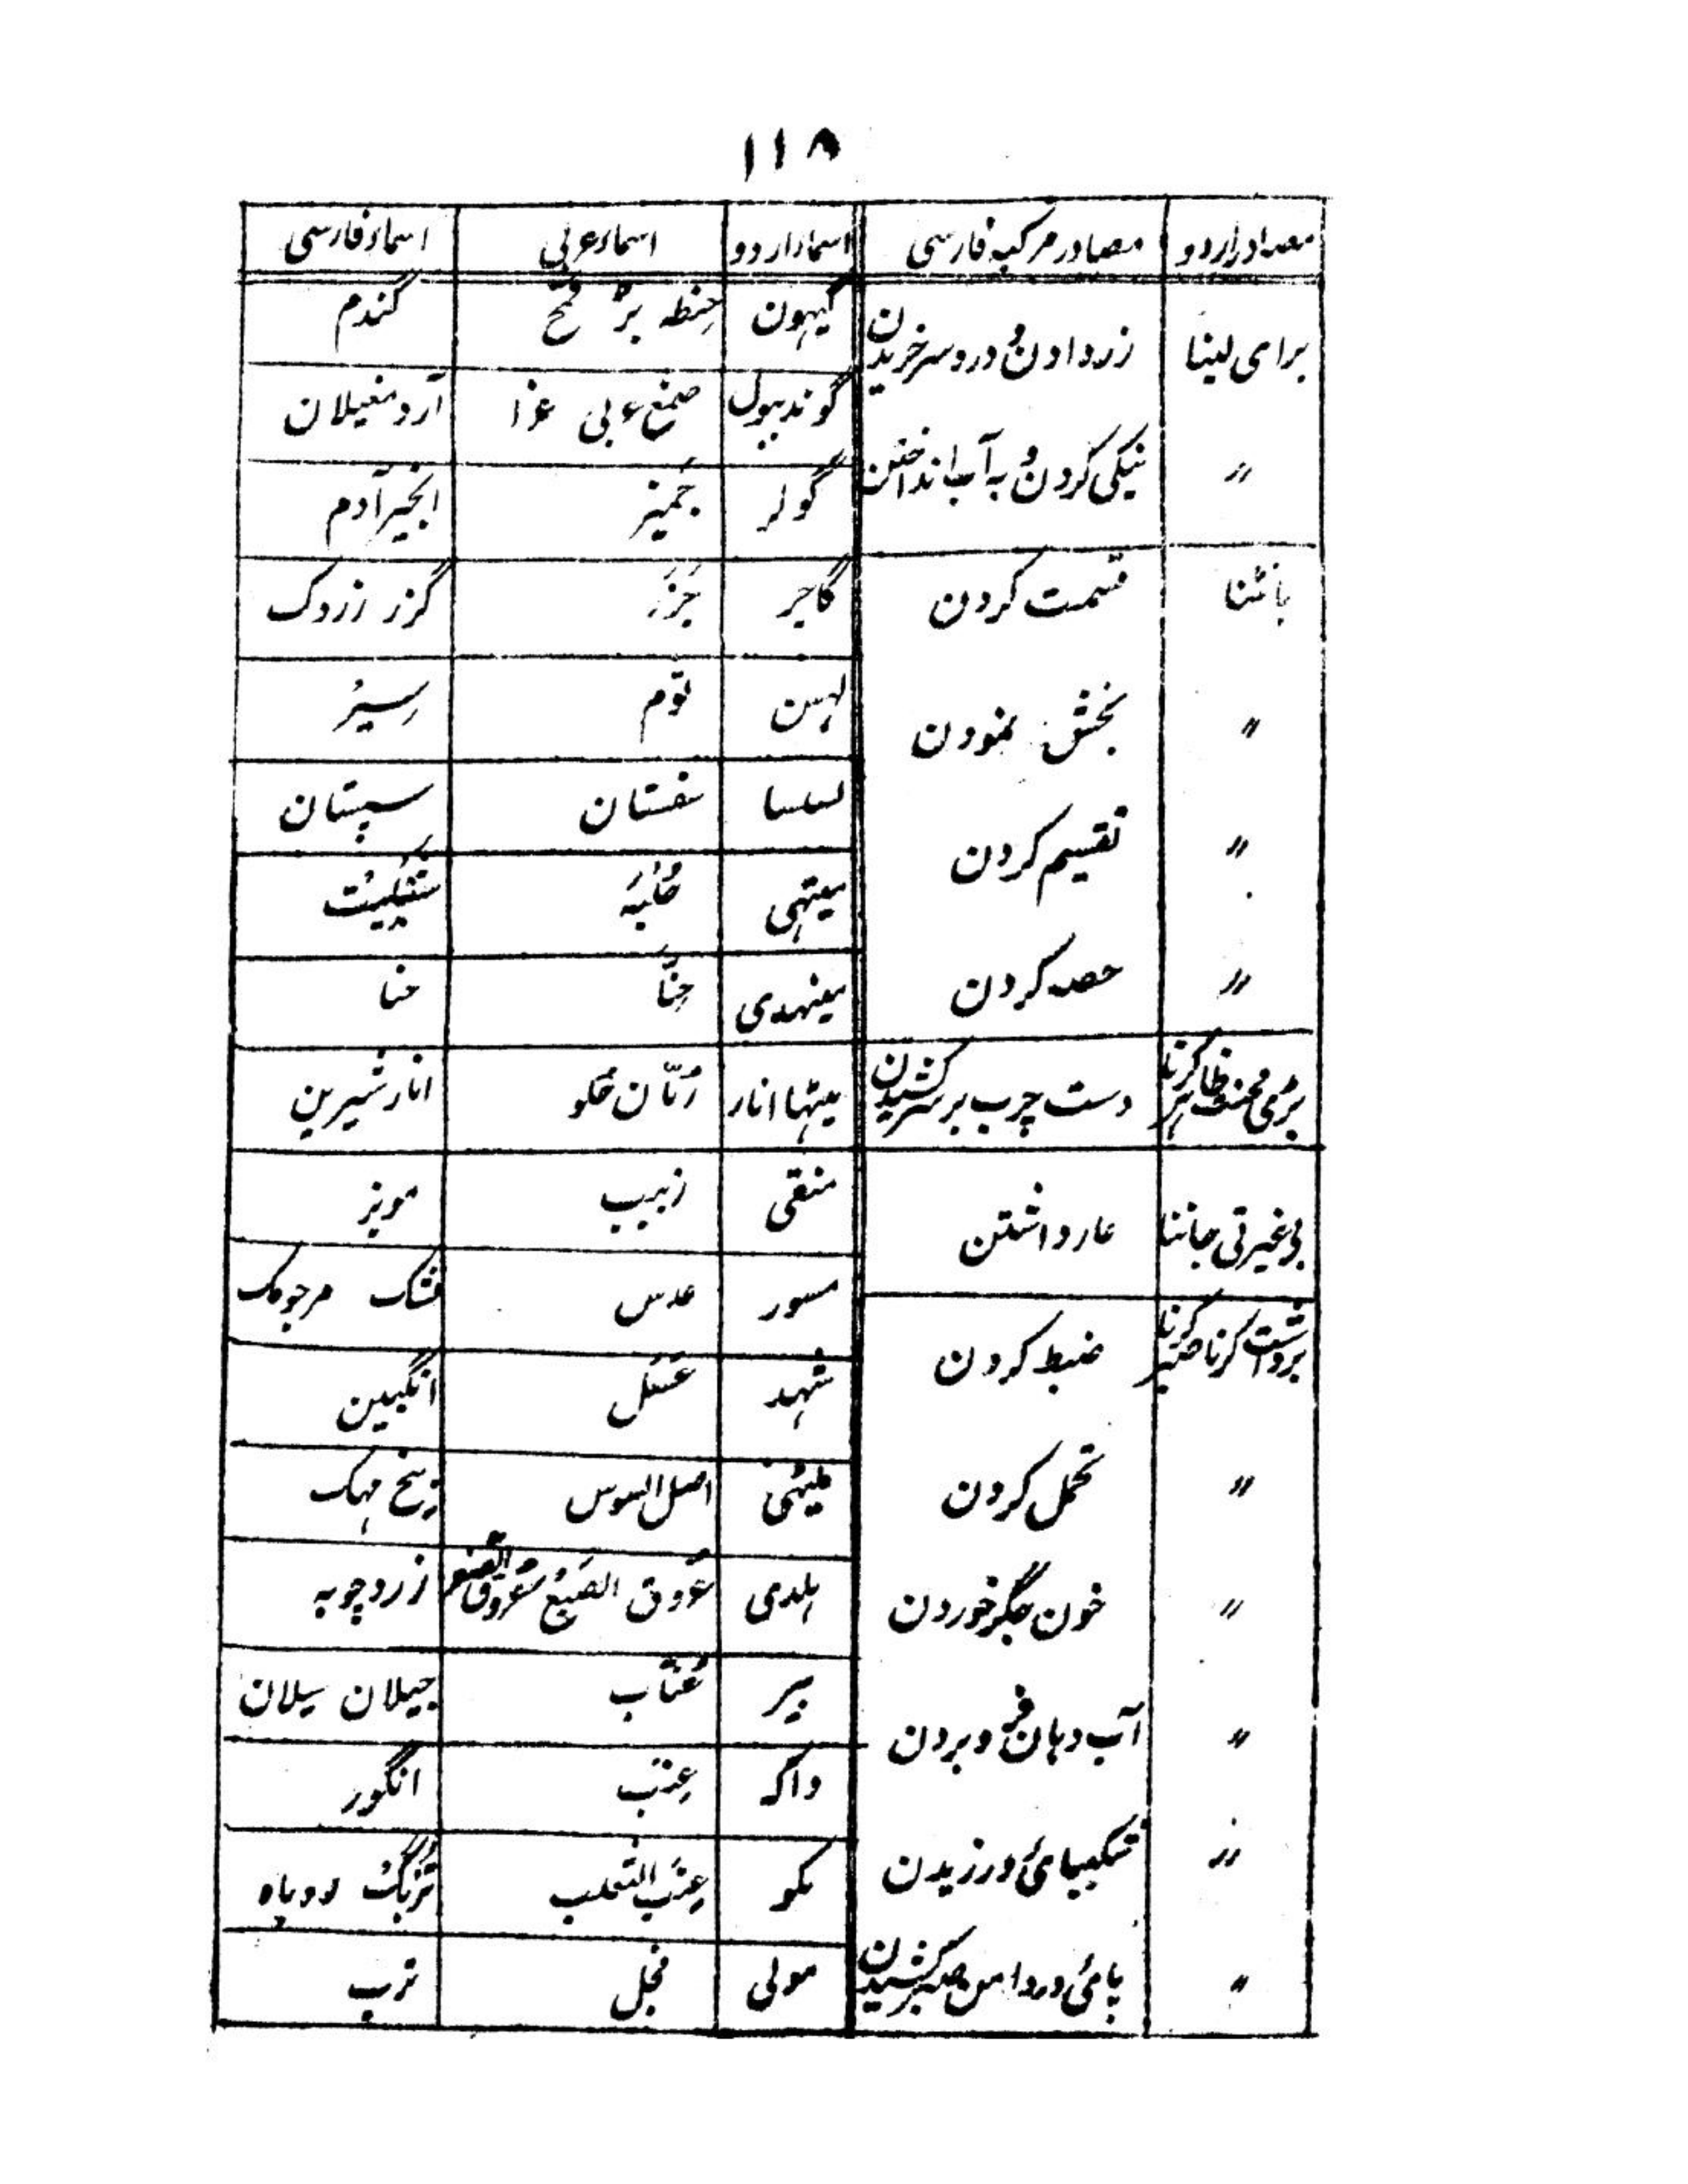 ۱۱۸
مصادر اردو | مصادر مرکبہ فارسی
برای لینا | زر دادن و درد سر خریدن
〃 | نیکی کردن و بہ آب انداختن
بانٹنا | قسمت کردن
〃 | بخش نمودن
〃 | تقسیم کردن
〃 | حصہ کردن
دست چرب بر سر کشیدن
بی غیرتی جاننا | عار داشتن
برداشت کرنا صبر کرنا | ضبط کردن
〃 | تحمل کردن
〃 | خون جگر خوردن
〃 | آب دہان فرو بردن
〃 | شکیبائی ورزیدن
〃 | پائی در دامن صبر کشیدن
اسماء اردو | اسماء عربی | اسماء فارسی
گیہون | حِنطہ بُرّ قمح | گندم
گوند ببول | صمغ عربی غرا | آرد مغیلان
گولر | جمیز | انجیر آدم
گاجر | جَزَر | گزر زردک
لہسن | ثوم | سیر
لسلسا | سفستان | سپستان
میتہی | حُلبَہ | شنبلیت
مینہدی | حِنّا | حنا
میٹہا انار | رُمّان حُلو | انار شیرین
منقی | زبیب | مویز
مسور | عدس | مرجومک
شہد | عَسَل | انگبین
ملیٹہی | اصل السوس | بیخ مہک
ہلدی | عُروق الصَبغ عُروق الصُفر | زردچوبہ
بیر | عُنّاب | جیلان سیلان
داکہ | عِنَب | انگور
مکو | عِنَب الثعلب
مولی | فجل | ترب